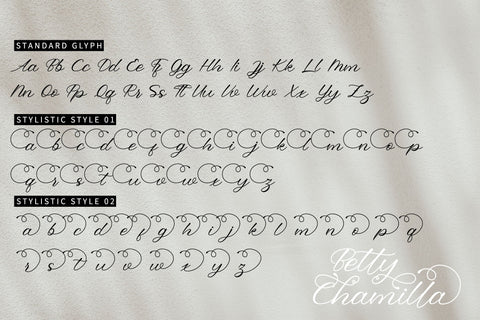 STANDARD GLYPH
Aa Bb Cc Dd Ee Ff Gg Hh Ii Jj Kk Ll Mm
Nn Oo Pp Qq Rr Ss Tt Uu Vv Ww Xx Yy Zz
STYLISTIC STYLE 01
a b c d e f g h i j k l m n o p
q r s t u v w x y z
STYLISTIC STYLE 02
a b c d e f g h i j k l m n o p q
r s t u v w x y z
Betty
Chamilla